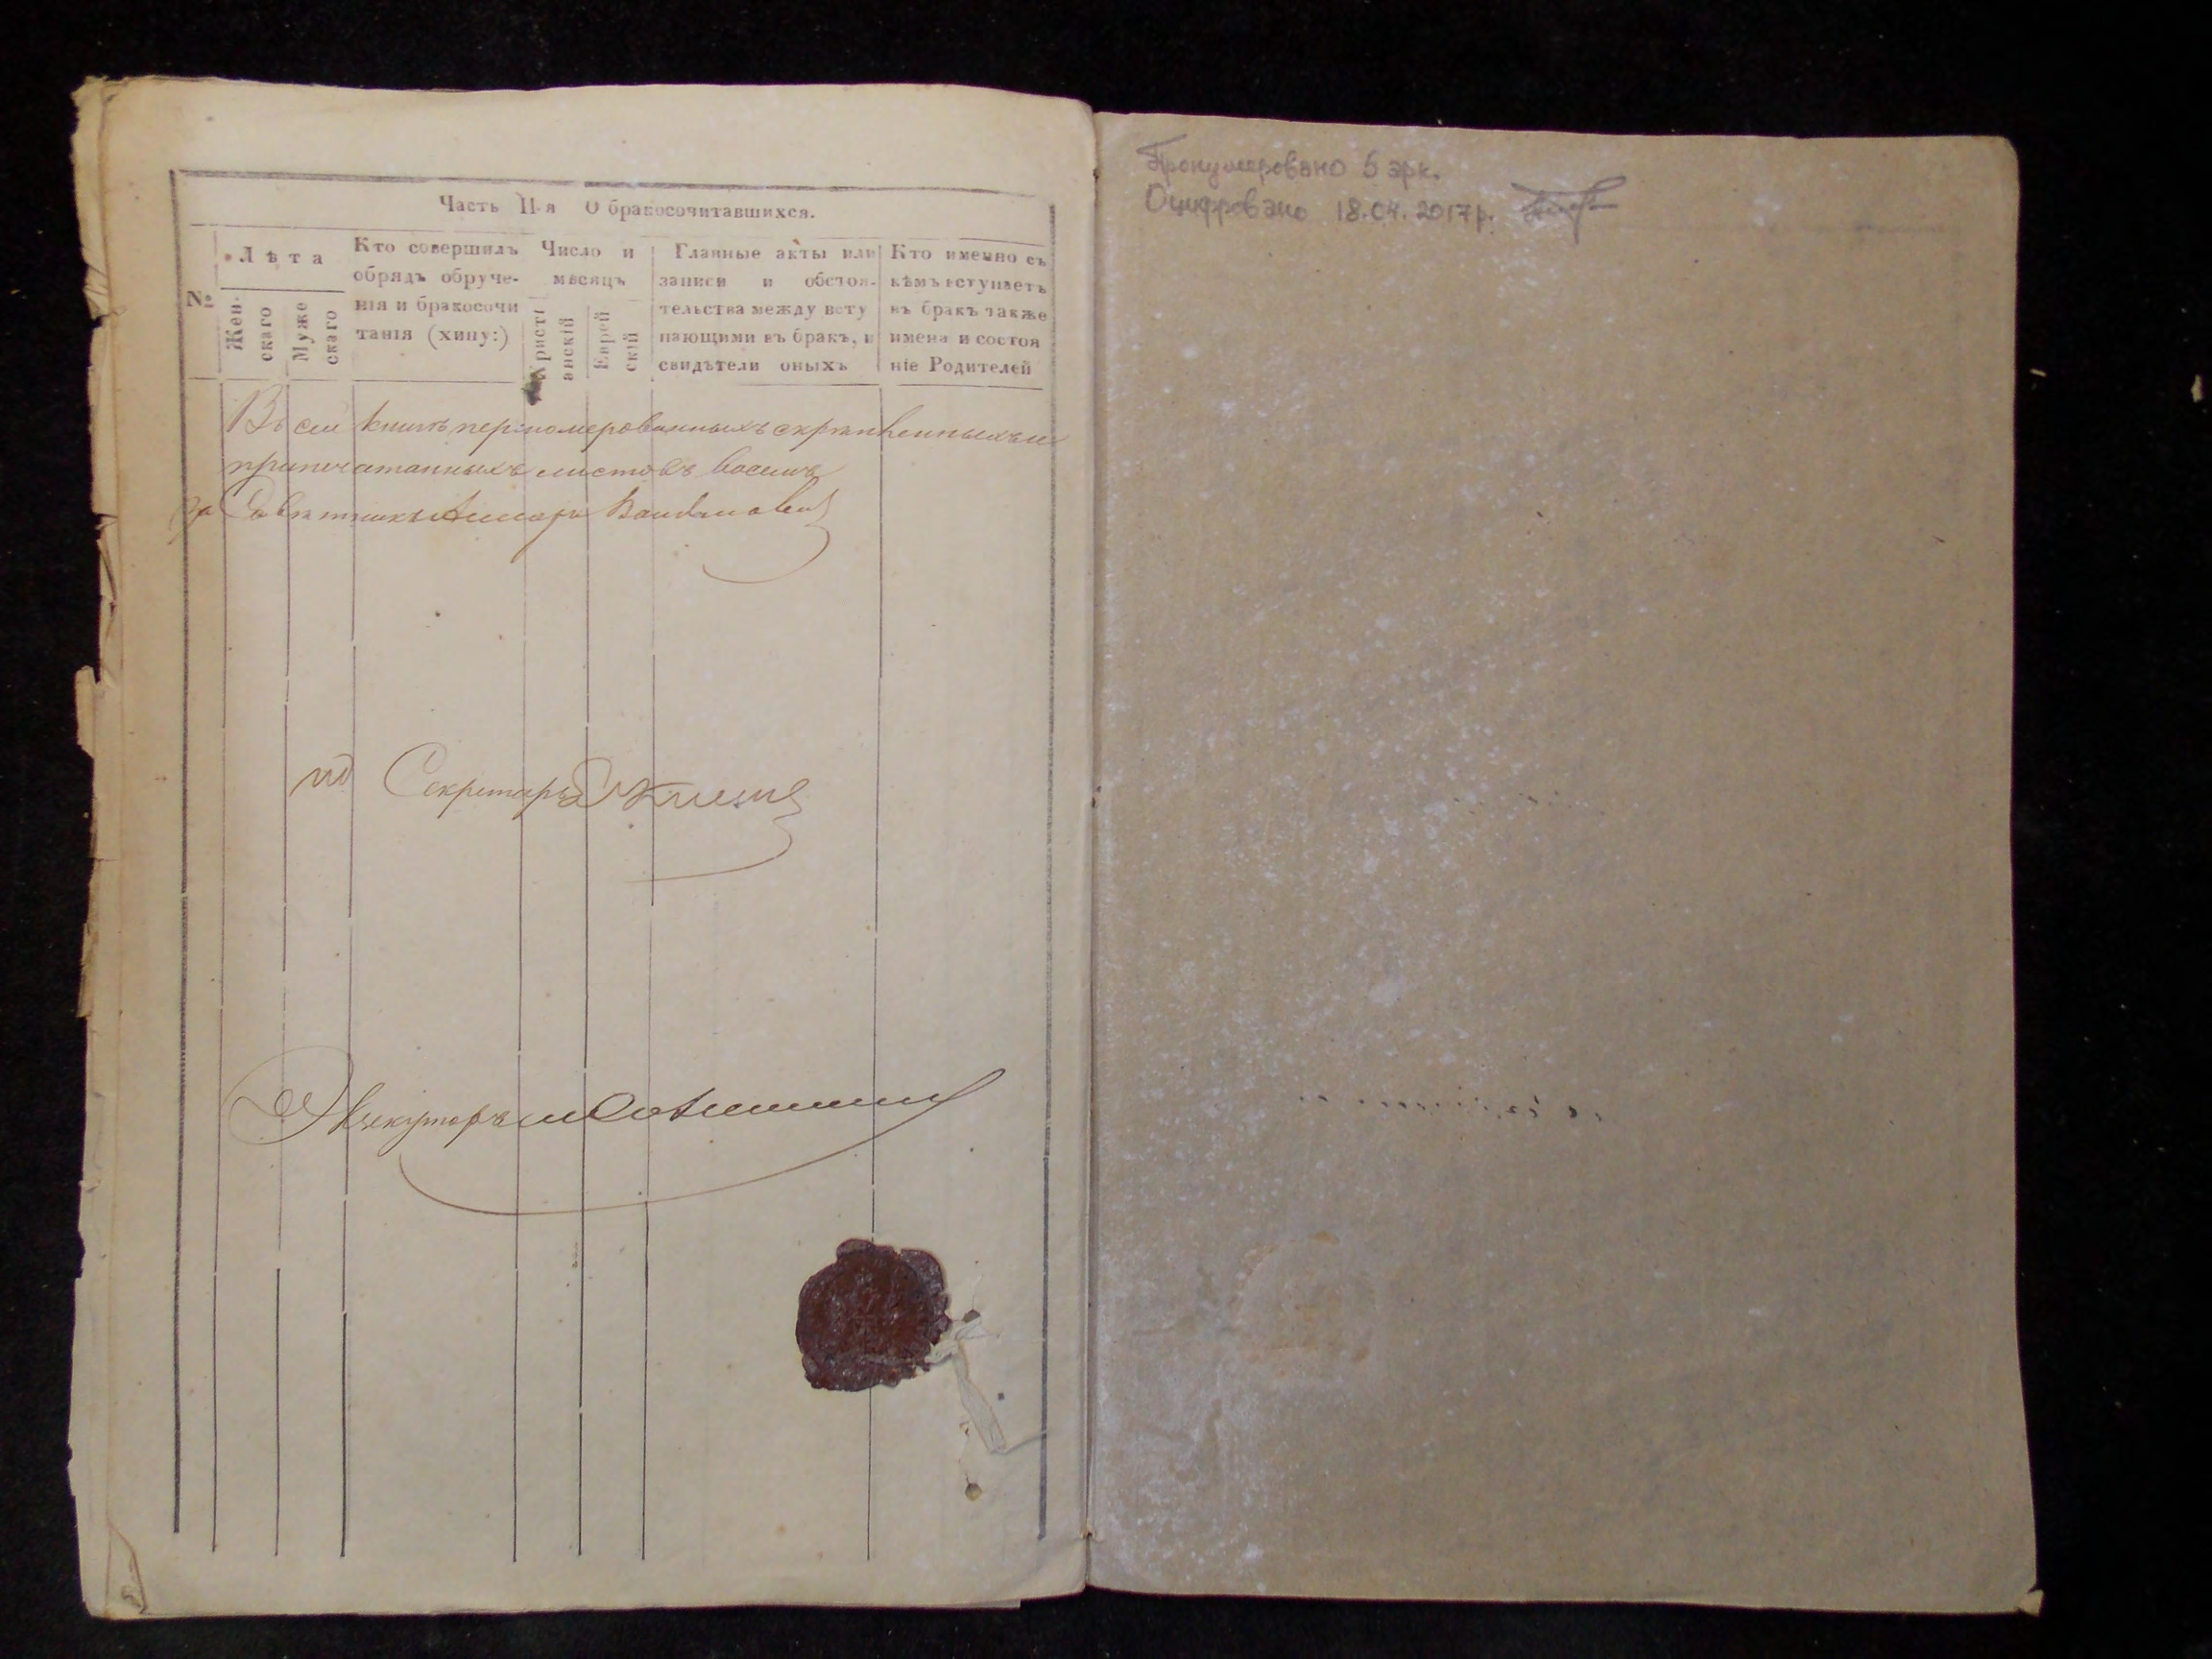 Часть II-я О бракосочитавшихся.
№
Лѣта
Жен-
скаго
Муже
скаго
Кто совершилъ
обрядъ обруче-
нія и бракосочи
танія (хипу:)
Число и
мѣсяцъ
Христі
анскій
Еврей
скій
Главные акты или
записи и обстоя-
тельства между всту
пающими въ бракъ, и
свидѣтели оныхъ
Кто именно съ
кѣмъ вступаетъ
въ бракъ также
имена и состоя
ніе Родителей
Въ сей книгѣ перномерованныхъ скрепленныхъ и
припечатанныхъ листовъ восемь
За Совѣтника
ид Секретаръ
Экзекуторъ
Пронумеровано 5 арк.
Оцифровано 18.04.2017р.